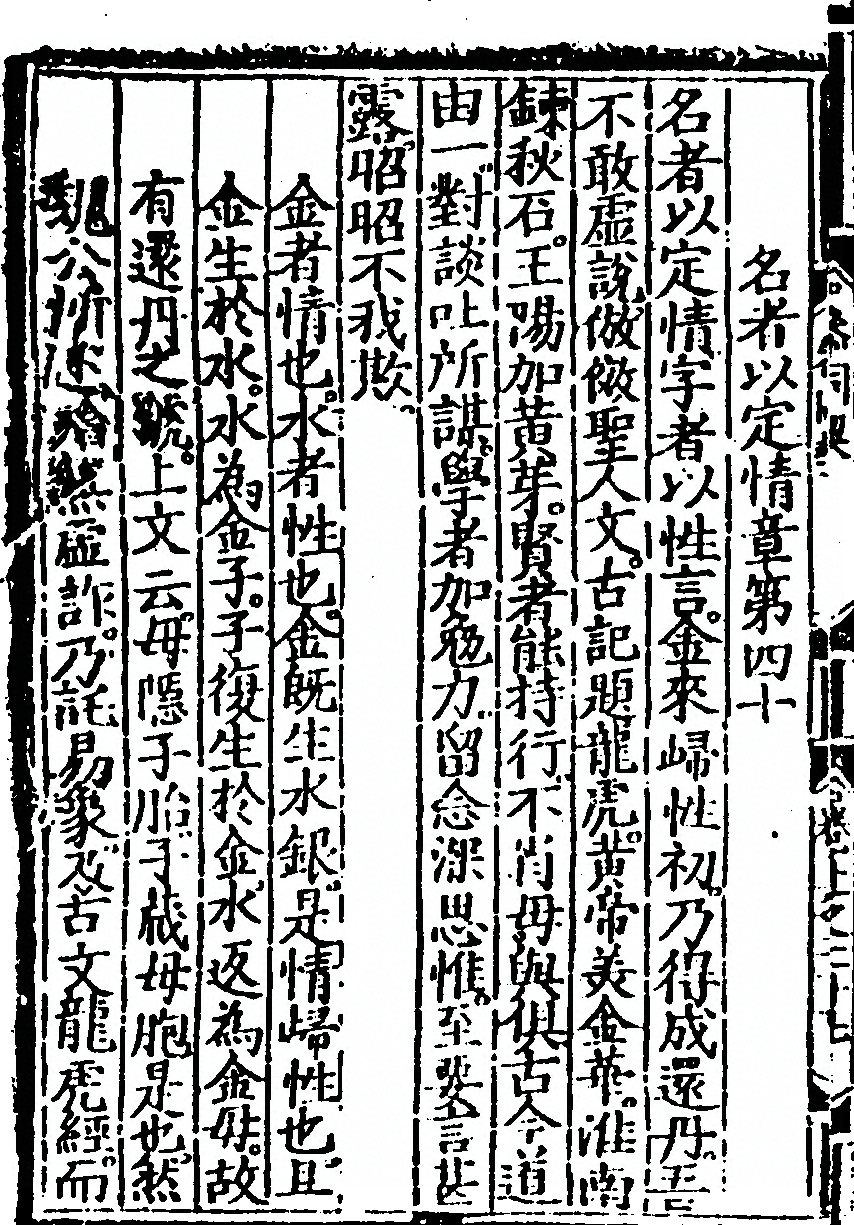 名者以定情章第四十
名者以定情字者以性言。金來歸性初。乃得成還丹。吾
不敢虛說。倣傚聖人文。古記題龍虎。黄帝美金華。淮南
鍊秋石。王陽加黄芽。賢者能持行。不肖毋與俱。古今道
由一。對談吐所謀。學者加勉力。留念深思惟。至要言甚
露。昭昭不我欺。
金者情也。水者性也。金既生水銀。是情歸性也。且
金生於水。水為金子。子復生於金水。返為金母。故
有還丹之號。上文云。母隱子胎。子藏母胞是也。然
魏公所述。猶𢙢虛詐。乃託易象及古文龍虎經。而